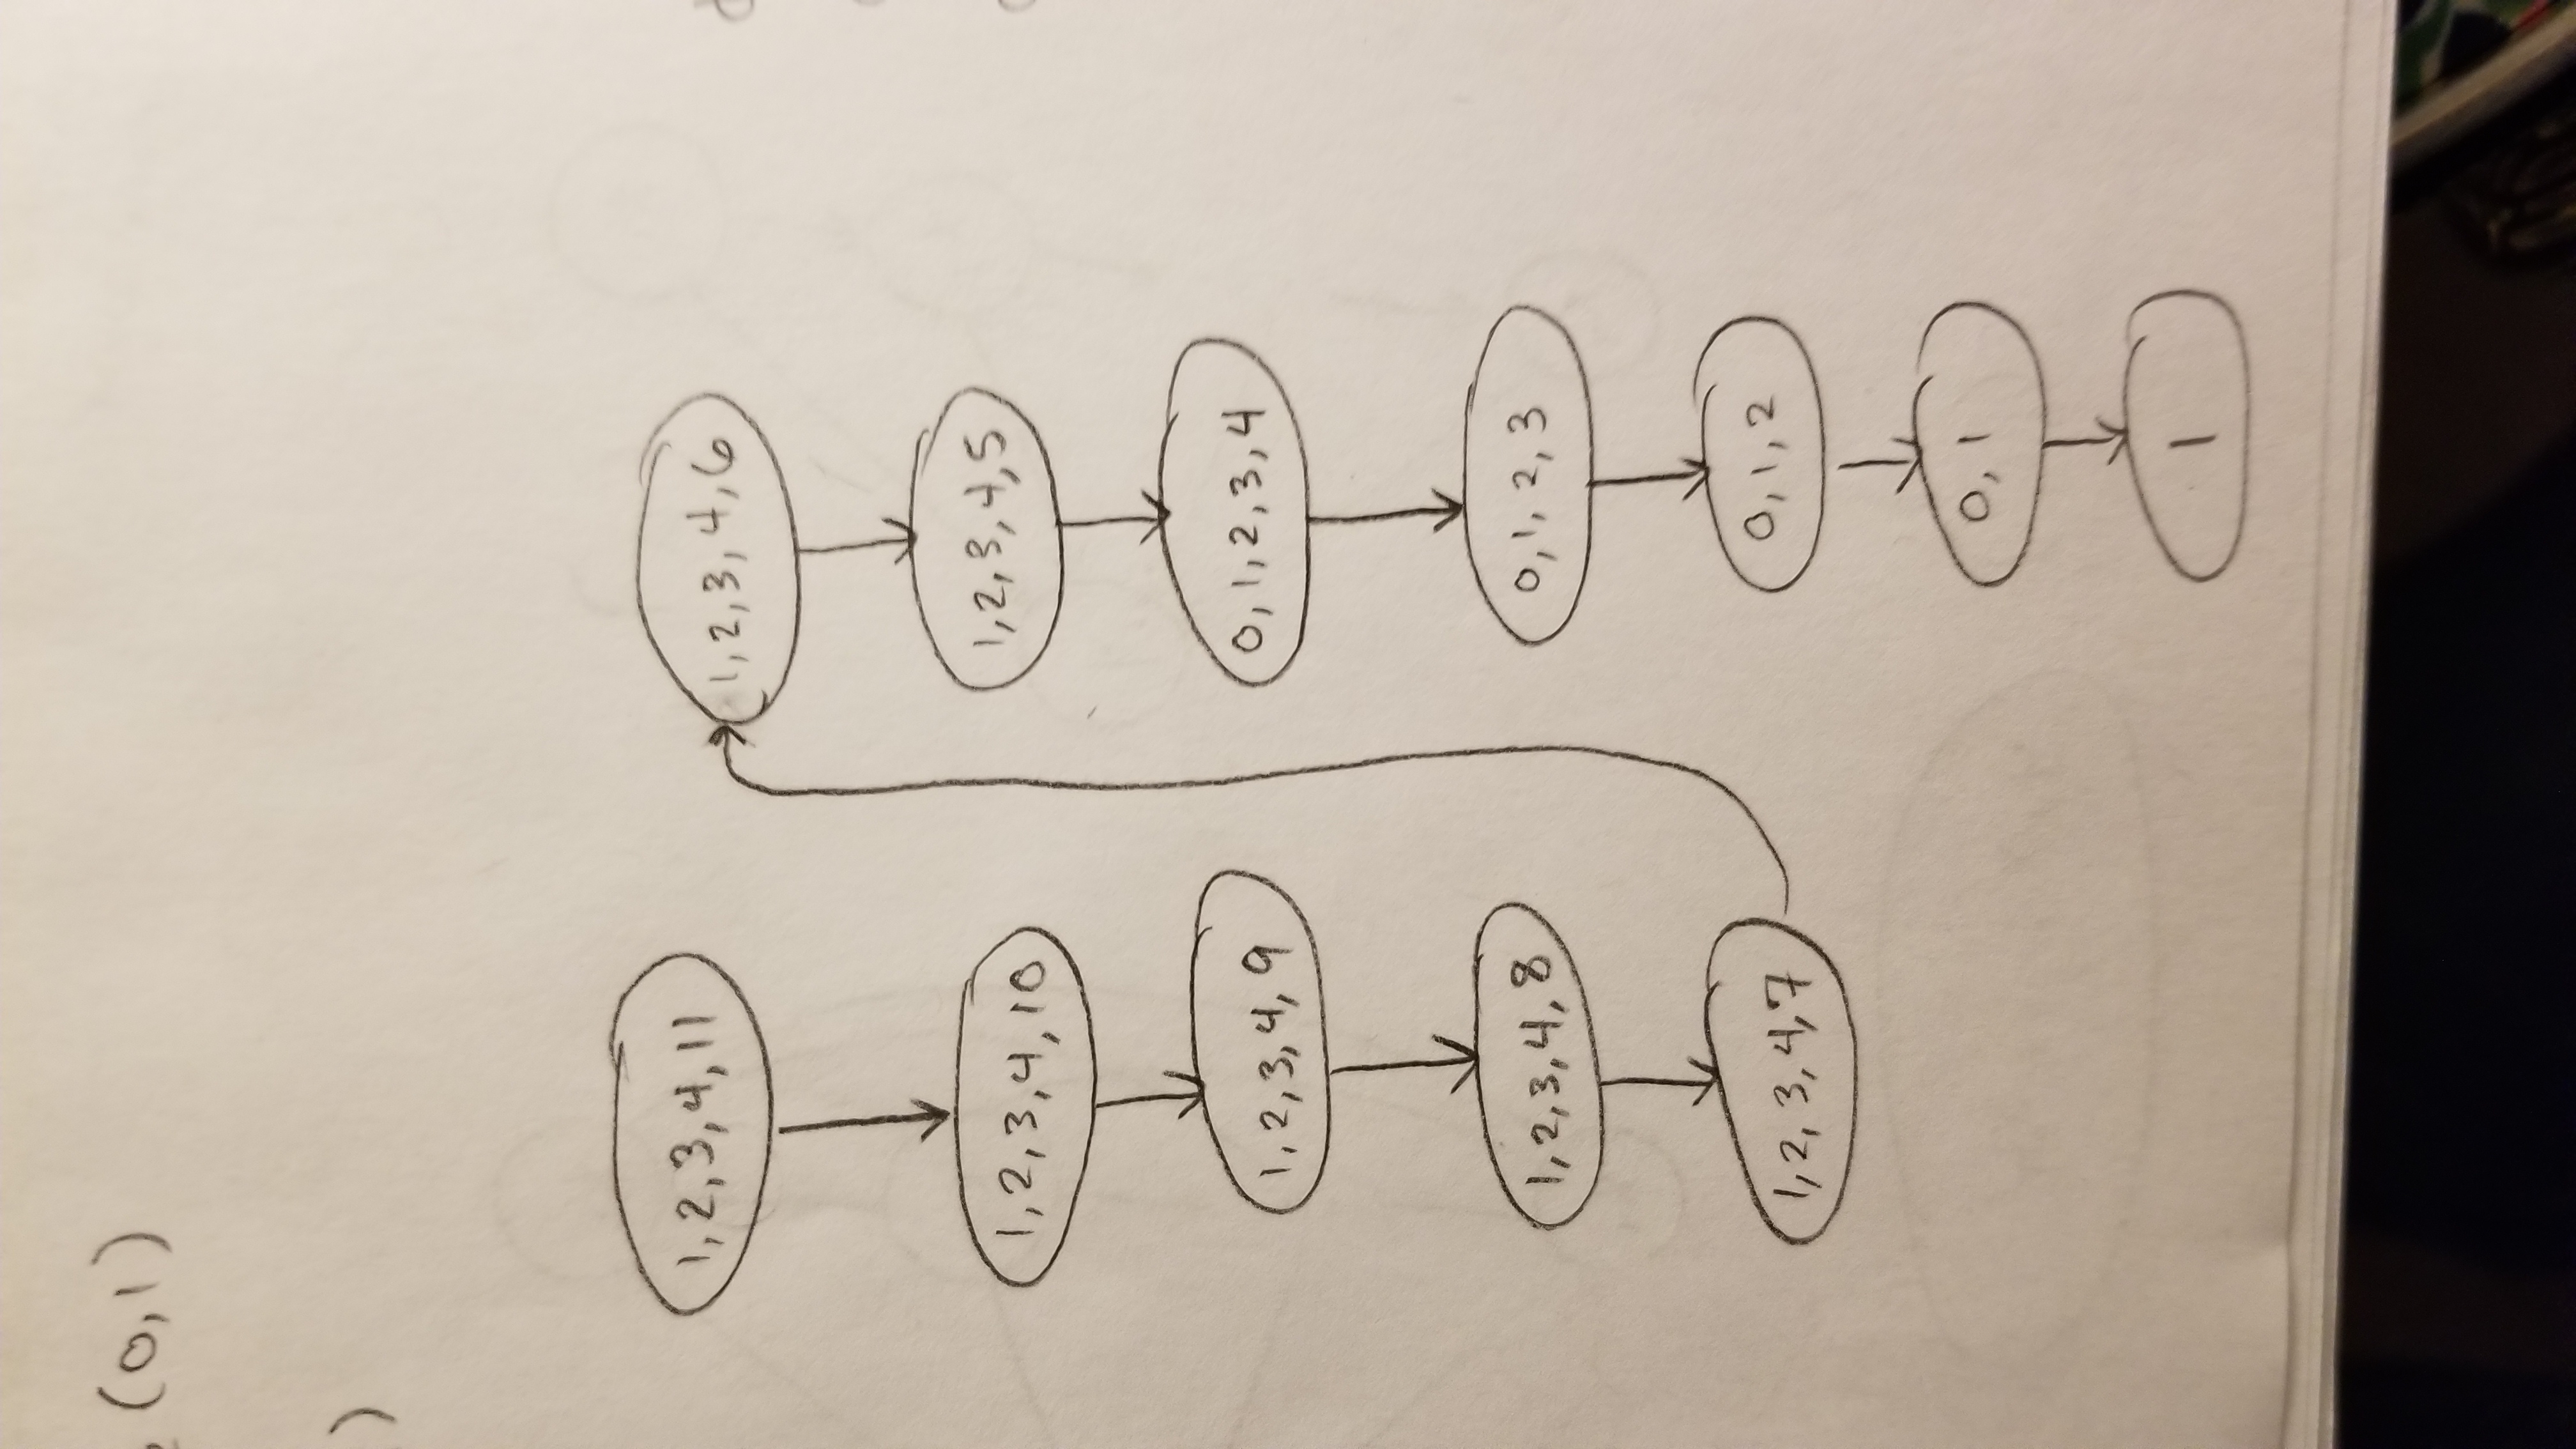 (0,1)
)
1,2,3,4,11
1,2,3,4,10
1,2,3,4,9
1,2,3,4,8
1,2,3,4,7
1,2,3,4,6
1,2,3,4,5
0,1,2,3,4
0,1,2,3
0,1,2
0,1
1